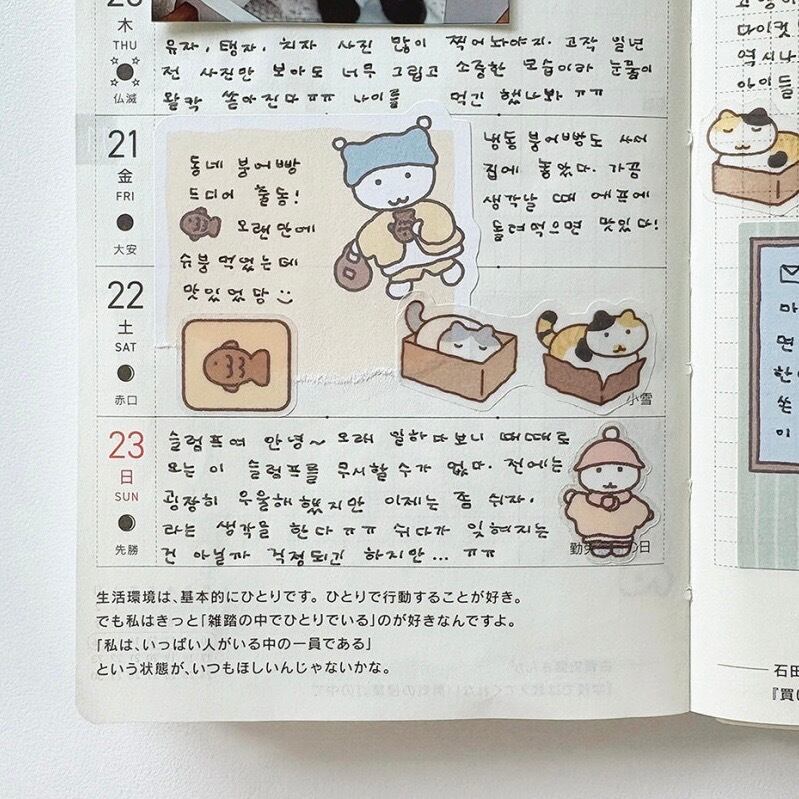 木
THU
仏滅
유자, 탱자, 치자 사진 많이 찍어놔야지. 고작 일년
전 사진만 보아도 너무 그립고 소중한 모습이라 눈물이
왈칵 쏟아진다ㅠㅠ 나이를 먹긴 했나봐 ㅠㅠ
21
金
FRI
大安
동네 붕어빵
드디어 출동!
오랜만에
슈붕 먹었는데
맛있었당 :)
냉동 붕어빵도 사서
집에 놓았다. 가끔
생각날 때 에프에
돌려먹으면 맛있다!
22
土
SAT
赤口
小雪
23
日
SUN
先勝
슬럼프여 안녕~ 오래 일하다보니 때때로
오는 이 슬럼프를 무서할 수가 없다. 전에는
굉장히 우울해했지만 이제는 좀 쉬자.
라는 생각을 한다ㅠㅠ 쉬다가 잊혀지는
건 아닐까 걱정되긴 하지만... ㅠㅠ
勤 の日
生活環境は、基本的にひとりです。ひとりで行動することが好き。
でも私はきっと「雑踏の中でひとりでいる」のが好きなんですよ。
「私は、いっぱい人がいる中の一員である」
という状態が、いつもほしいんじゃないかな。
다이컷
역시나
아이들
마
면
한
쏜
이
石田
『買い